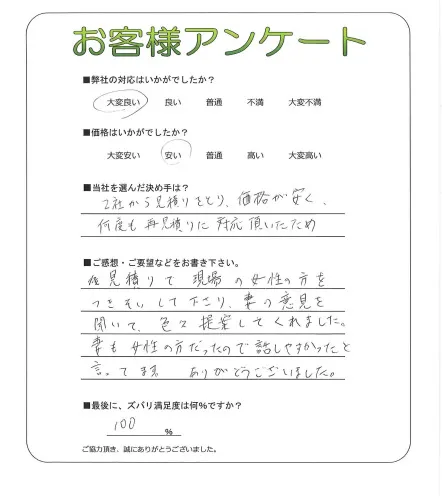 お客様アンケート
■弊社の対応はいかがでしたか?
大変良い 良い 普通 不満 大変不満
■価格はいかがでしたか?
大変安い 安い 普通 高い 大変高い
■当社を選んだ決め手は?
2社から見積りをとり、価格が安く、
何度も再見積りに対応頂いたため
■ご感想・ご要望などをお書き下さい。
見積りで現場の女性の方を
つきそいして下さり、妻の意見を
聞いて、色々提案してくれました。
妻も女性の方だったので話しやすかったと
言ってます。ありがとうございました。
■最後に、ズバリ満足度は何%ですか?
100 %
ご協力頂き、誠にありがとうございました。